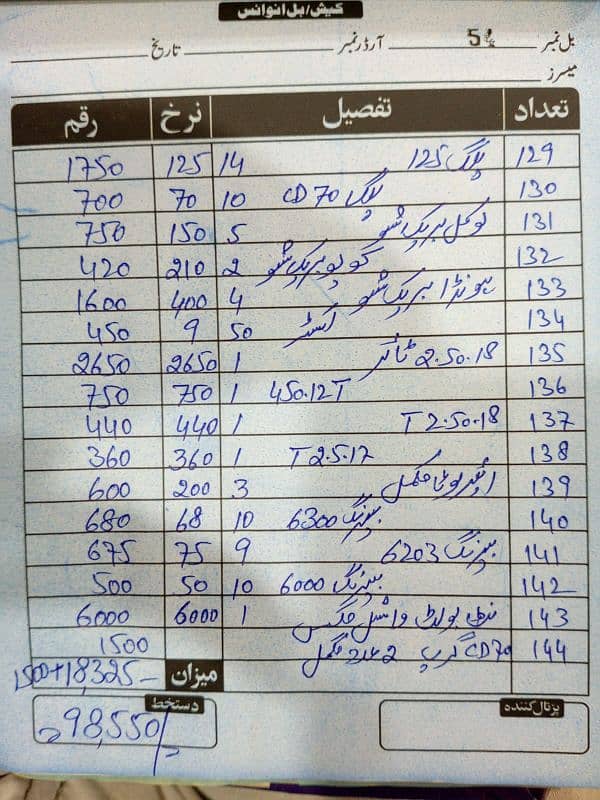 کیش/بل انوائس
بل نمبر 5 آرڈر نمبر تاریخ
میسرز
تعداد تفصیل نرخ رقم
129 پلگ 125 14 125 1750
130 پلگ CD 70 10 70 700
131 لوکل بریک شو 5 150 750
132 بریک شو 2 210 420
133 ہونڈا بریک شو 4 400 1600
134 50 9 450
135 2.50.18 ٹائر 1 2650 2650
136 450.12 T 1 750 750
137 T 2.50.18 1 440 440
138 T 2.5.17 1 360 360
139 مکمل 3 200 600
140 بیرنگ 6300 10 68 680
141 بیرنگ 6203 9 75 675
142 بیرنگ 6000 10 50 500
143 نٹ بولٹ واشل مکس 1 6000 6000
144 CD 70 گرپ 2 عدد مکمل 1500
میزان 1500+18,325
پڑتال کنندہ دستخط
98,550/